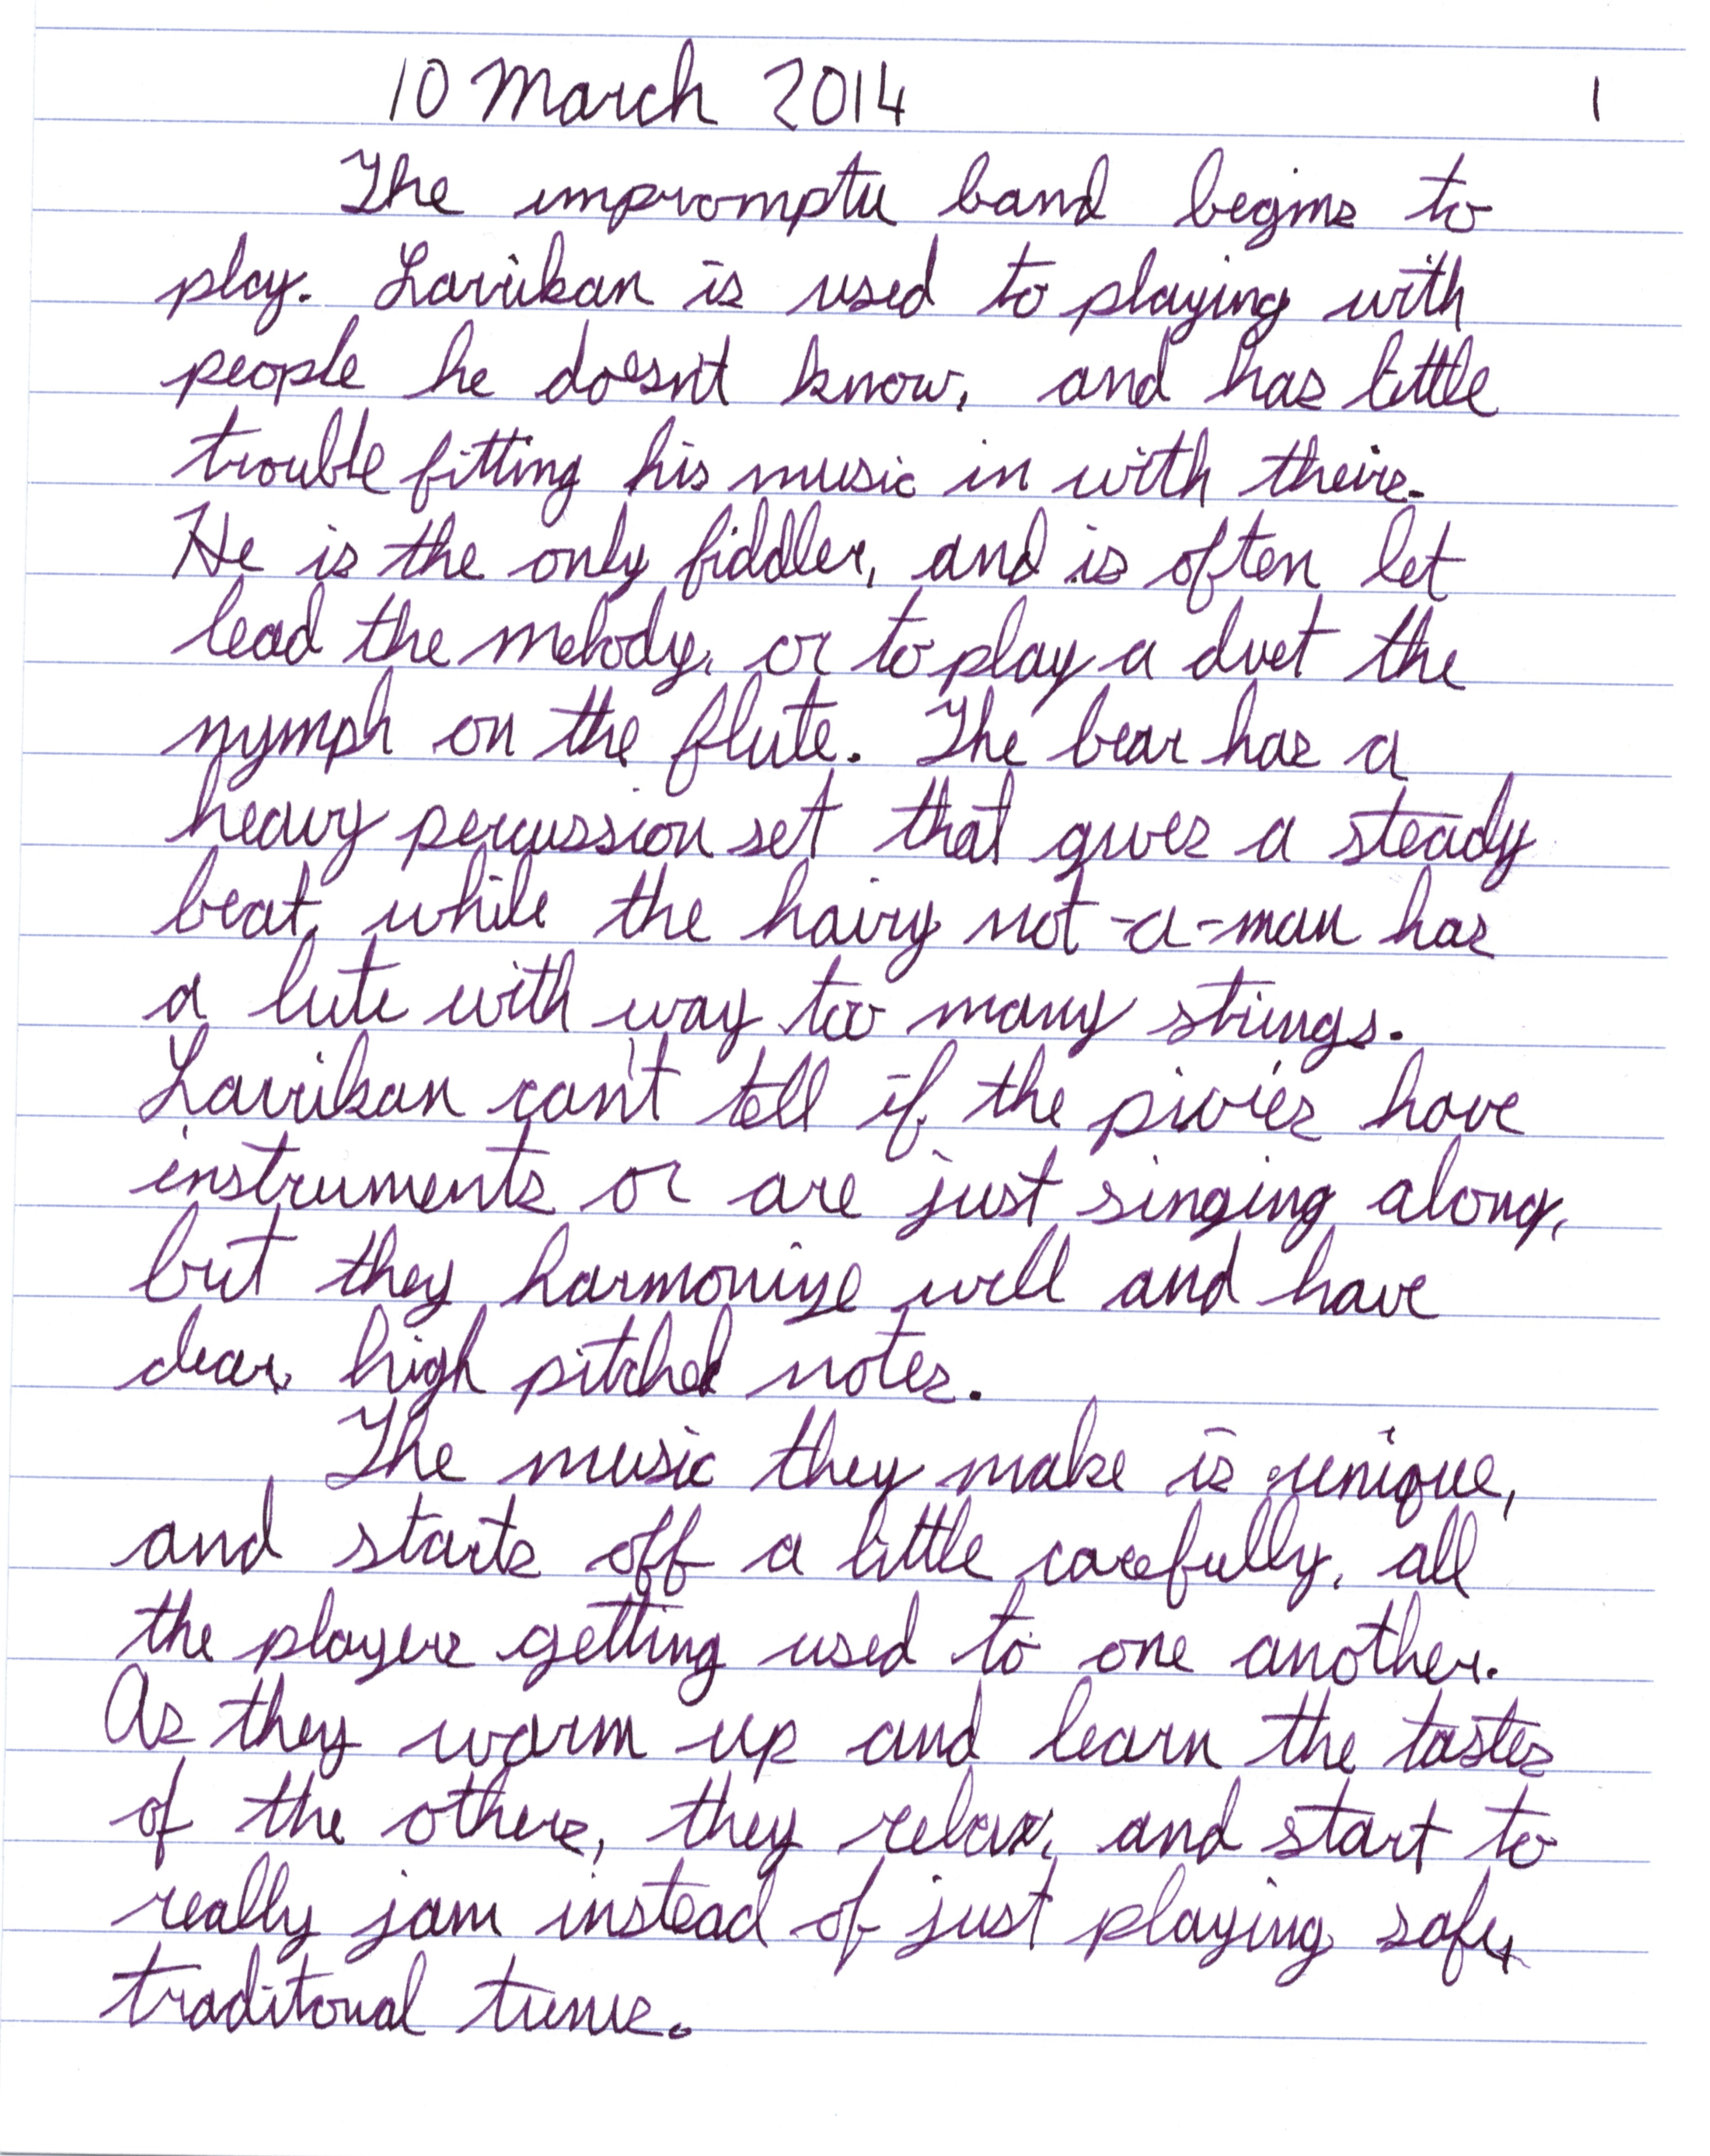 10 March 2014 1
The impromptu band begins to
play. Lavrikan is used to playing with
people he doesn't know, and has little
trouble fitting his music in with theirs.
He is the only fiddler, and is often let
lead the melody, or to play a duet the
nymph on the flute. The bear has a
heavy percussion set that gives a steady
beat, while the hairy not-a-man has
a lute with way too many strings.
Lavrikan can't tell if the pixies have
instruments or are just singing along,
but they harmonize well and have
clear, high pitched notes.
The music they make is unique,
and starts off a little carefully, all
the players getting used to one another.
As they warm up and learn the tastes
of the others, they relax, and start to
really jam instead of just playing safe,
traditonal tunes.